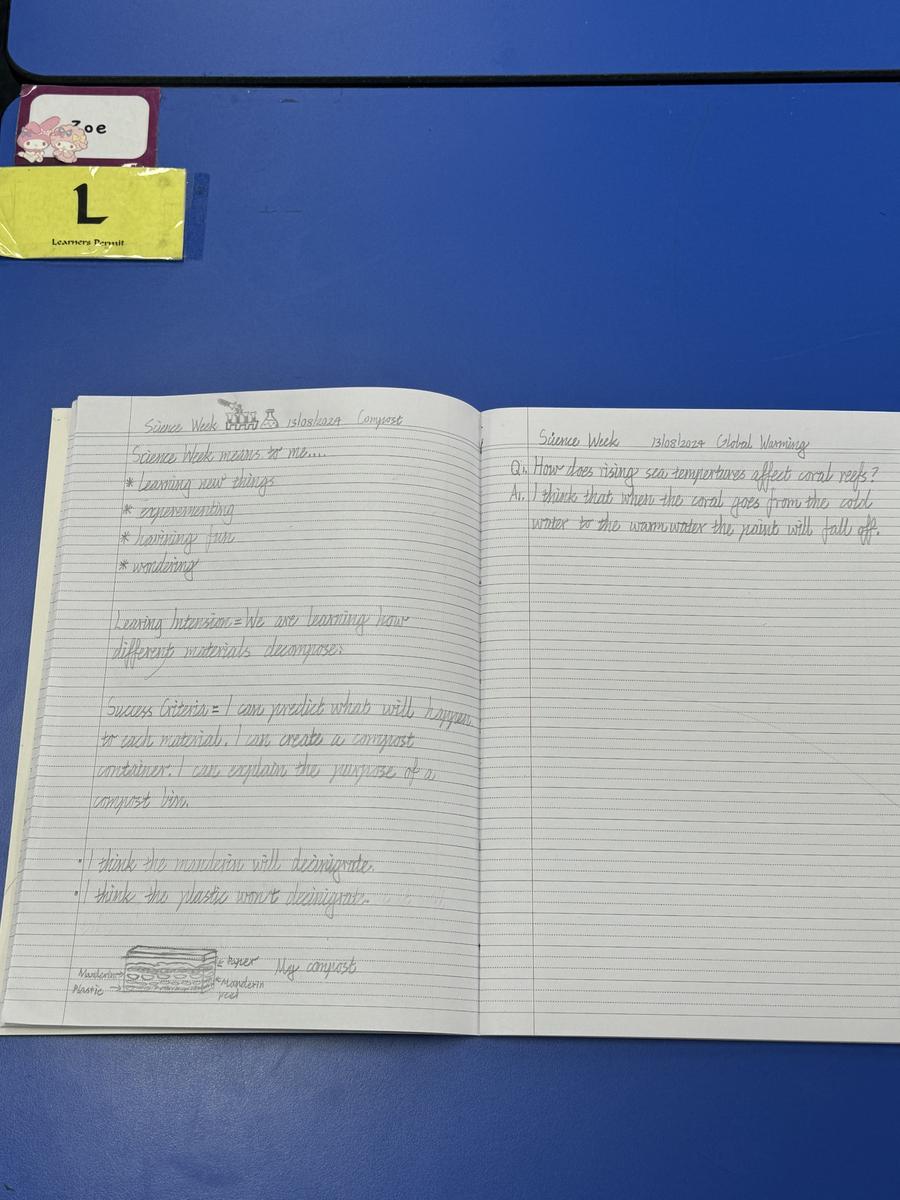 Zoe
L
Learners Permit
Science Week 13/08/2024 Compost
Science Week means to me....
* Learning new things
* experementing
* havining fun
* wondering
Learing Intension = We are learning how
different materials decompose.
Success Criteria = I can predict what will happen
to each material. I can create a compost
container. I can explain the purpose of a
compost bin.
• I think the manderin will decinigrate.
• I think the plastic won't decinigrate.
Paper
Manderin
Manderin
Peel
Plastic
My compost
Science Week 13/08/2024 Global Warming
Q1. How does rising sea tempertures affect coral reefs?
A1. I think that when the coral goes from the cold
water to the warm water the paint will fall off.